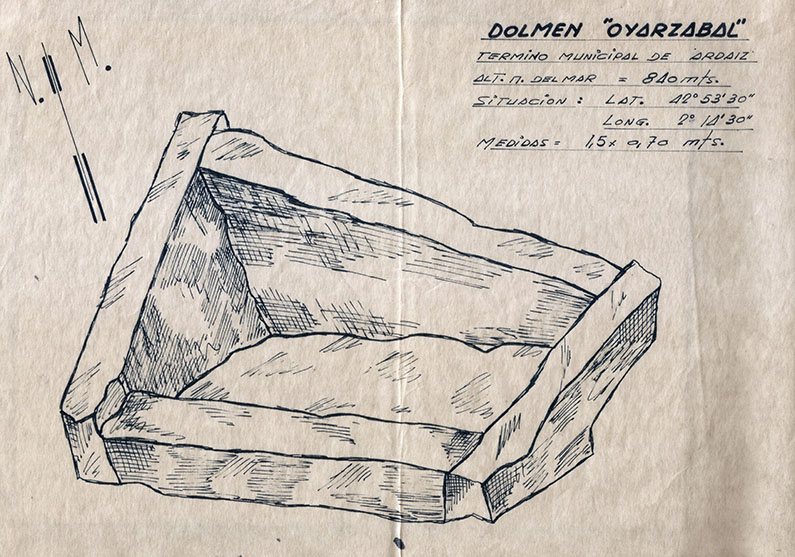 N. M.
DOLMEN "OYARZABAL"
TERMINO MUNICIPAL DE ARDAIZ
ALT. N. DEL MAR = 840 mts.
SITUACION : LAT. 42° 53' 30"
LONG. 2° 14' 30"
MEDIDAS = 1,5 x 0,70 mts.